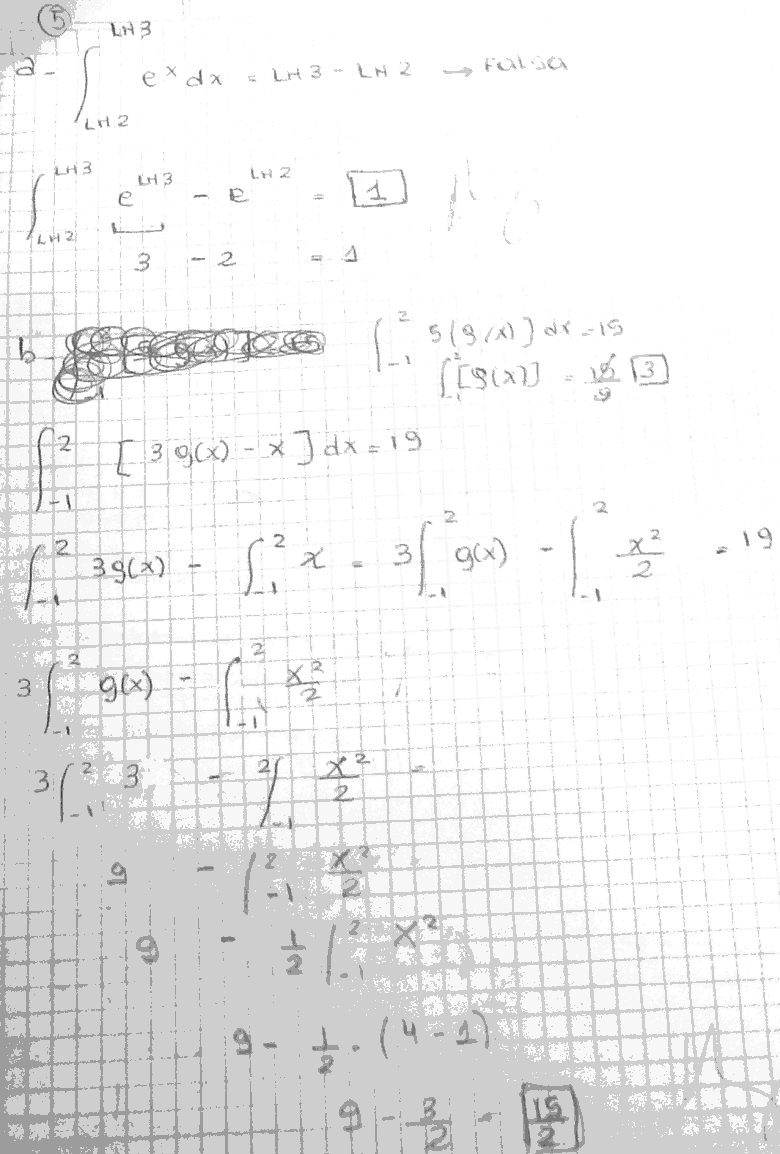 5
a- ∫_{LN2}^{LN3} e^x dx = LN3 - LN2 → Falsa
∫_{LN2}^{LN3} e^{LN3} - e^{LN2} = 1
3 - 2 = 1
b- ∫_{-1}^{2} 5(g(x)] dx = 15
∫_{-1}^{2} [g(x)] = 3
∫_{-1}^{2} [3g(x) - x] dx = 19
∫_{-1}^{2} 3g(x) - ∫_{-1}^{2} x = 3∫_{-1}^{2} g(x) - ∫_{-1}^{2} x²/2 = 19
3∫_{-1}^{2} g(x) - ∫_{-1}^{2} x²/2
3∫_{-1}^{2} 3 - ∫_{-1}^{2} x²/2 =
9 - |_{-1}^{2} x²/2
9 - 1/2 |_{-1}^{2} x²
9 - 1/2 · (4 - 1)
9 - 3/2 = 15/2